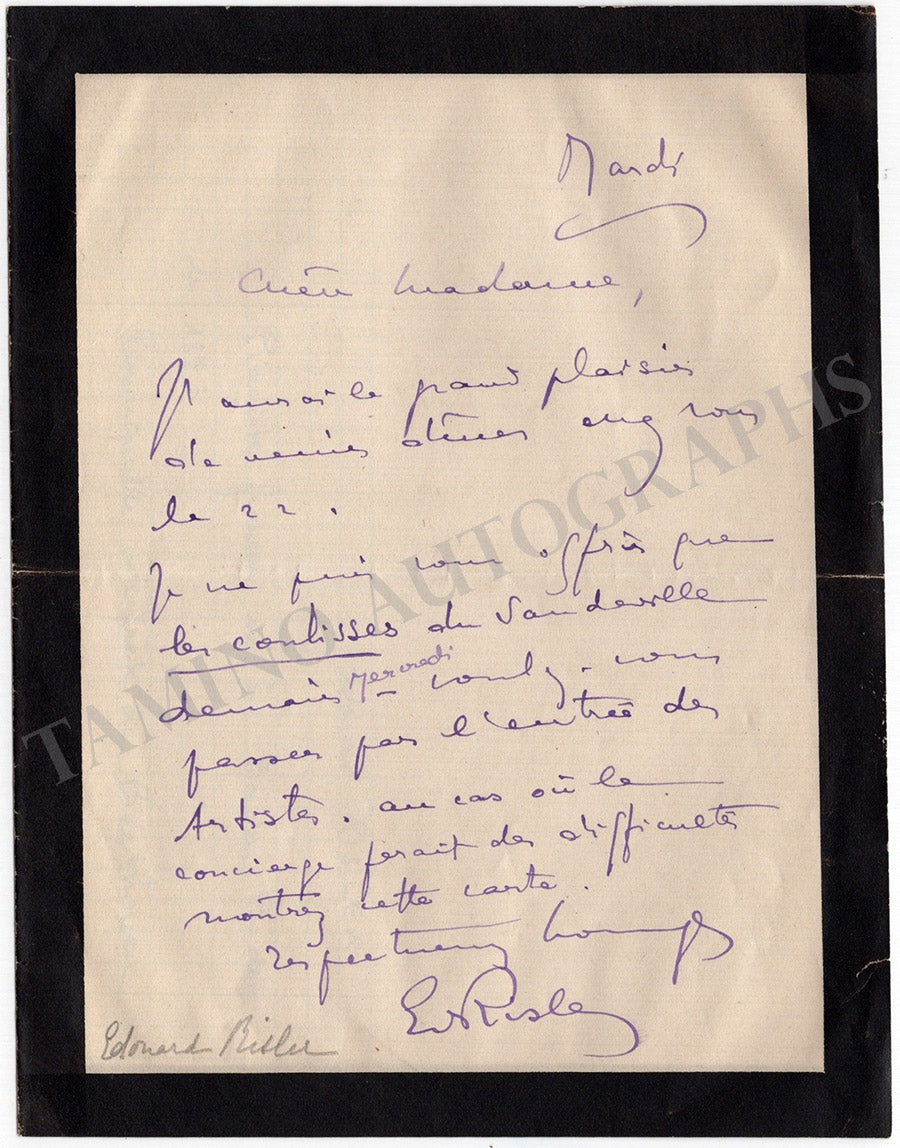 Mardi
Chère Madame,
J'aurai le grand plaisir
de venir dîner chez vous
le 22.
Je ne puis vous offrir que
les coulisses du Vaudeville
demain Mercredi - voulez-vous
passer par l'entrée des
Artistes. au cas où le
concierge ferait des difficultés
montrez cette carte.
respectueux hommages
Ed Risler
Edouard Risler
TAMINO AUTOGRAPHS